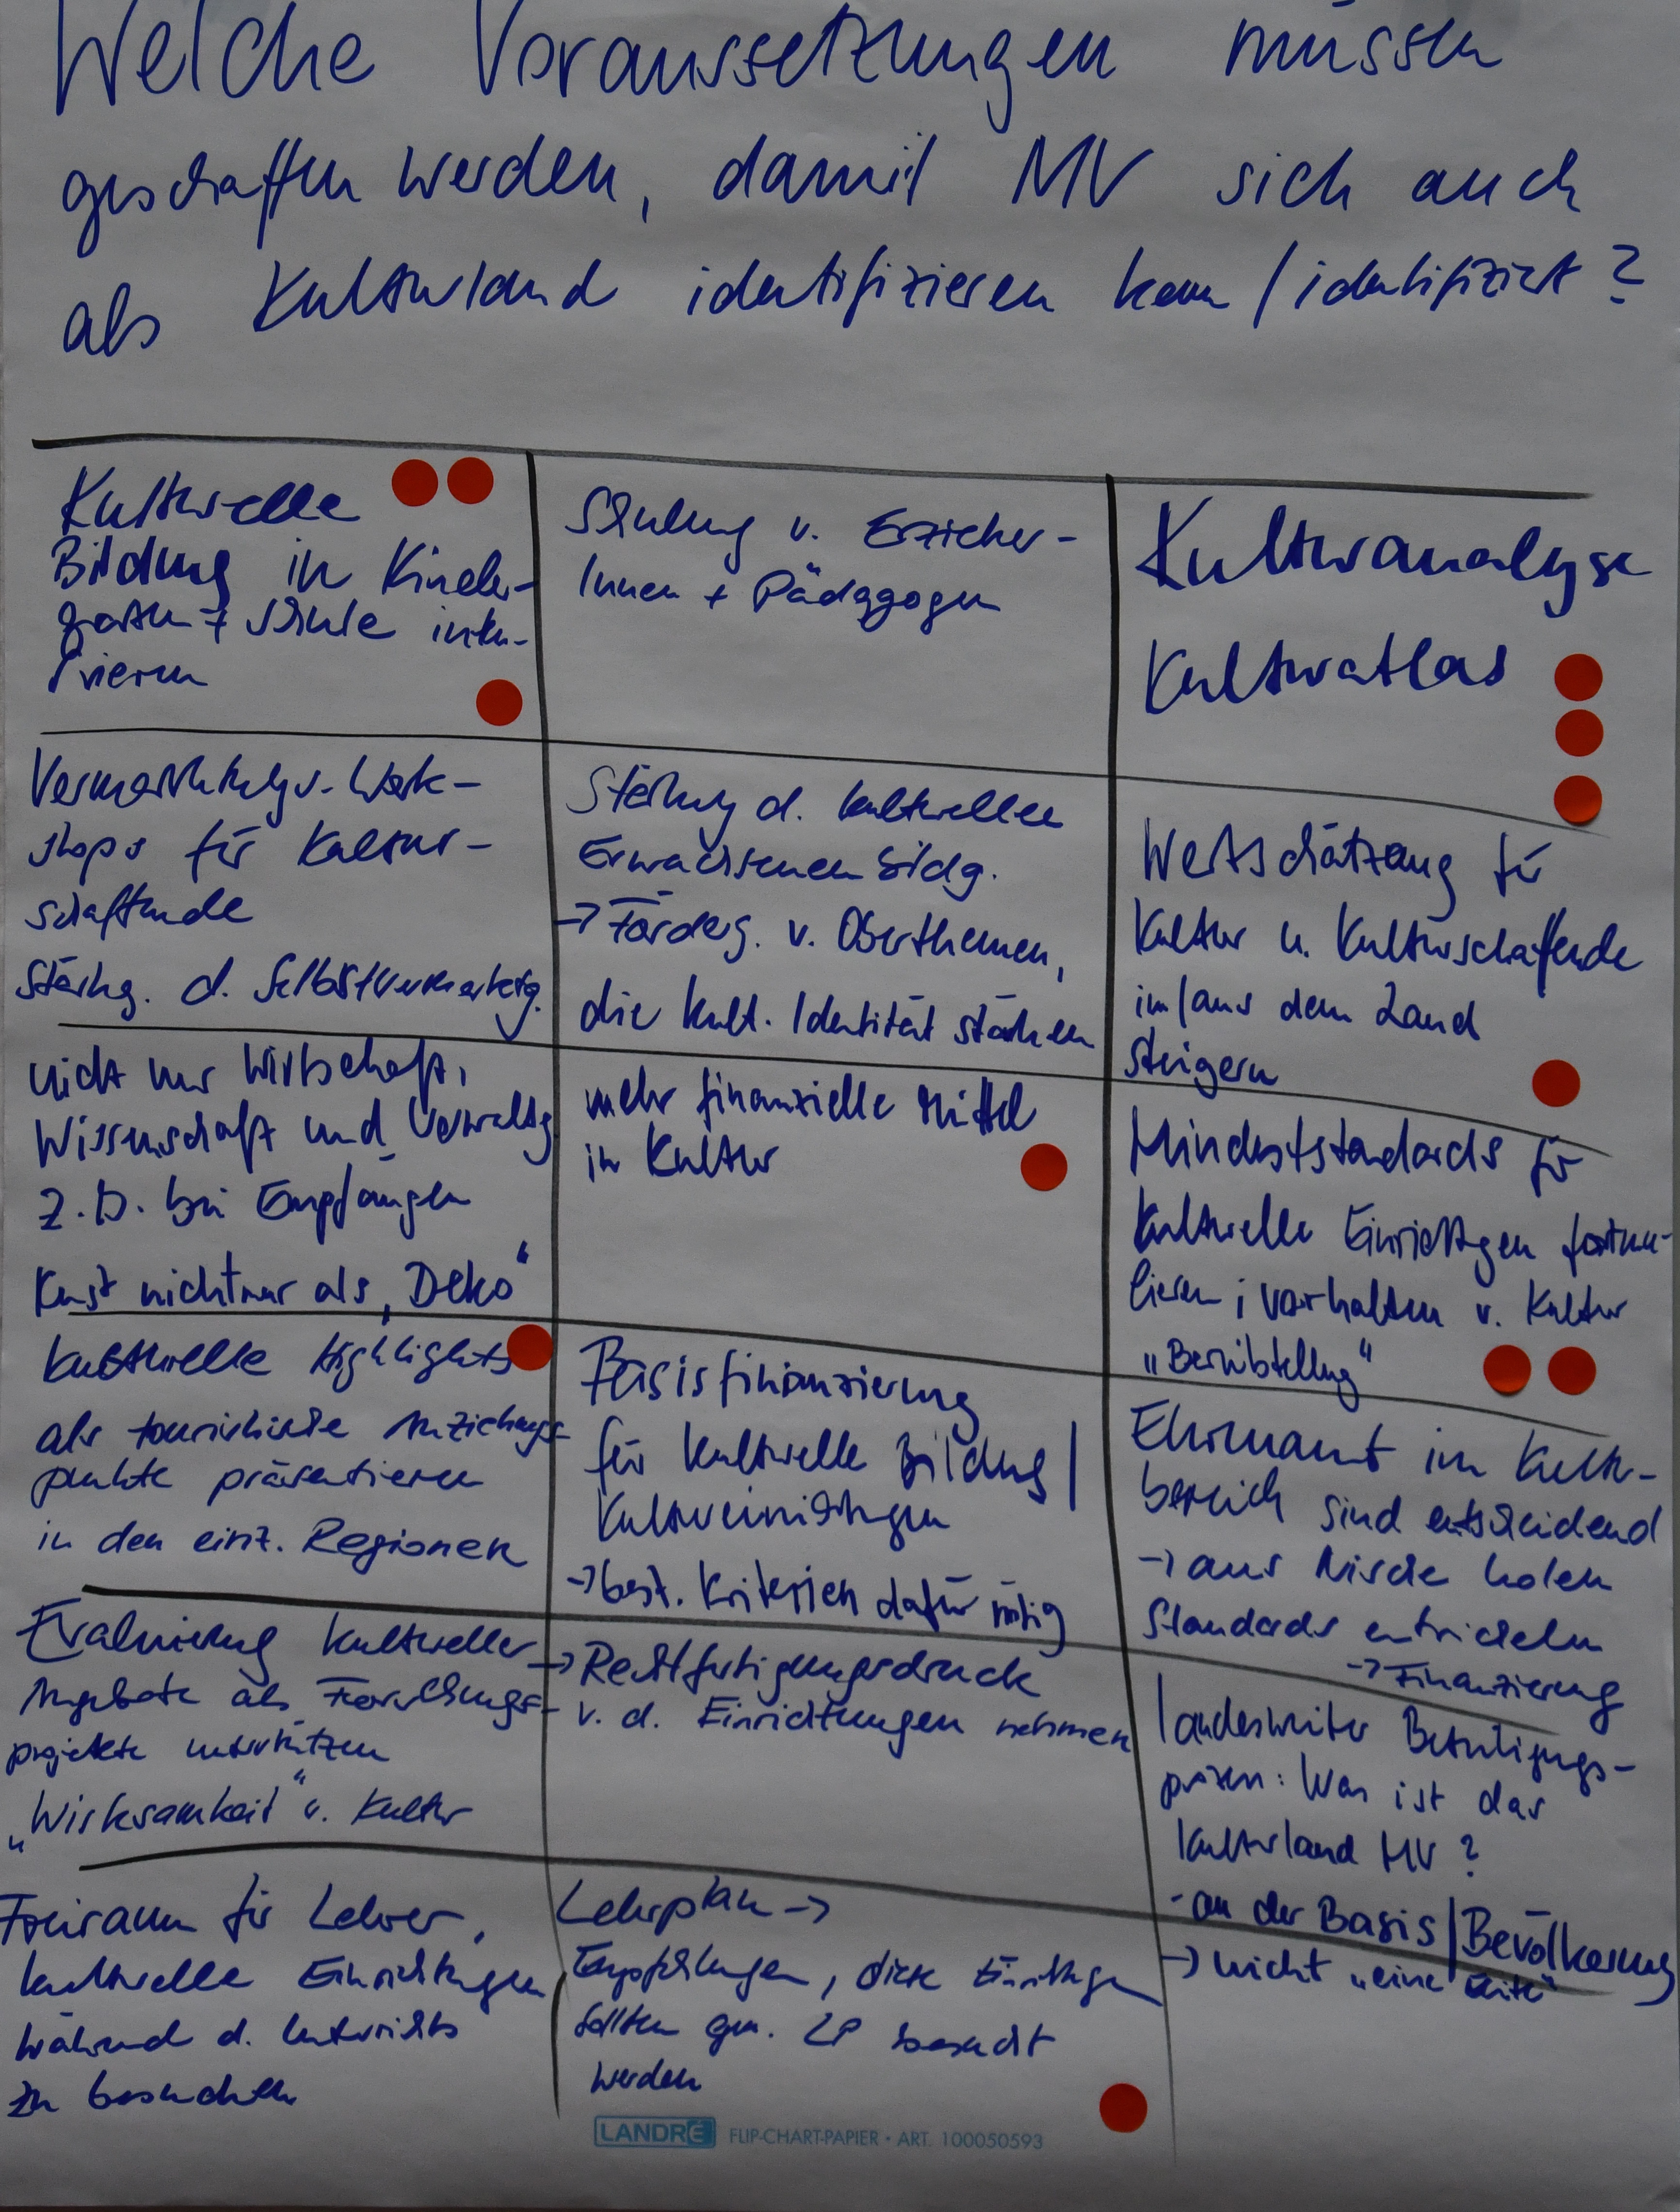 Welche Voraussetzungen müssen
geschaffen werden, damit MV sich auch
als Kulturland identifizieren kann / identifiziert?
Kulturelle
Bildung in Kinder-
garten + Schule inte-
grieren
Schulung v. Erzieher-
Innen + Pädagogen
Kulturanalyse
Kulturatlas
Vermarktungs-Work-
shops für Kultur-
schaffende
Stärkg. d. Selbstvermarktg.
Stärkung d. kulturellen
Erwachsenenbildg.
→ Förderg. v. Oberthemen,
die kult. Identität stärken
Wertschätzung für
Kultur u. Kulturschaffende
im/aus dem Land
steigern
nicht nur Wirtschaft,
Wissenschaft und Verwaltg
z.B. bei Empfängen
Kunst nicht nur als „Deko“
mehr finanzielle Mittel
in Kultur
Mindeststandards für
kulturelle Einrichtgen formu-
lieren ; vorhalten v. Kultur
„Bereitstellung“
kulturelle Highlights
als touristische Anziehungs-
punkte präsentieren
in den einz. Regionen
Basisfinanzierung
für kulturelle Bildung/
Kultureinrichtungen
→ best. Kriterien dafür nötig
Ehrenamt im Kultur-
bereich sind entscheidend
→ aus Nische holen
Standards entwickeln
→ Finanzierung
Evaluierung kultureller
Angebote als Forschungs-
projekte unterstützen
„Wirksamkeit“ v. Kultur
→ Rechtfertigungsdruck
v. d. Einrichtungen nehmen
landesweiter Beteiligungs-
prozess: Was ist das
Kulturland MV?
- an der Basis/Bevölkerung
→ nicht „eine Elite“
Freiraum für Lehrer,
kulturelle Einrichtungen
während d. Unterrichts
zu besuchen
Lehrplan →
Empfehlungen, diese Einrichtgen
sollten gem. LP besucht
werden
LANDRÉ FLIP-CHART-PAPIER • ART. 100050593